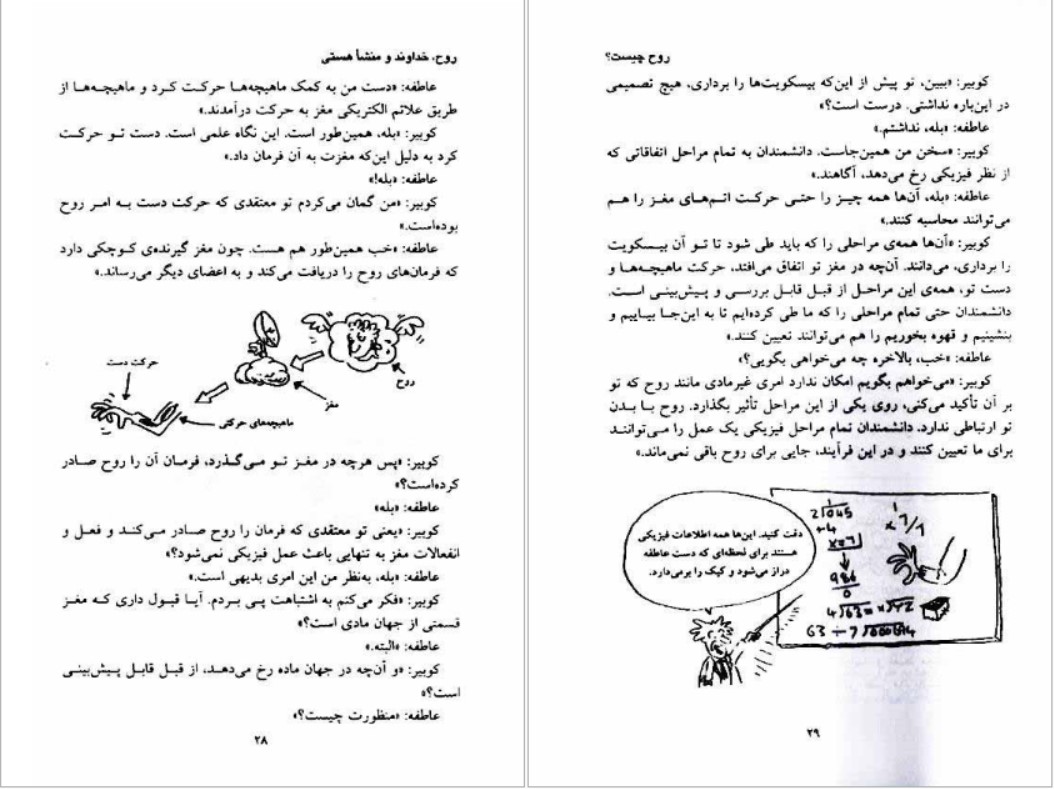 روح، خداوند و منشأ هستی
عاطفه: «دست من به کمک ماهیچه‌ها حرکت کرد و ماهیچه‌ها از
طریق علائم الکتریکی مغز به حرکت درآمدند.»
کوبیر: «بله، همین‌طور است. این نگاه علمی است. دست تو حرکت
کرد به دلیل این‌که مغزت به آن فرمان داد.»
عاطفه: «بله!»
کوبیر: «من گمان می‌کردم تو معتقدی که حرکت دست به امر روح
بوده‌است.»
عاطفه: «خب همین‌طور هم هست. چون مغز گیرنده‌ی کوچکی دارد
که فرمان‌های روح را دریافت می‌کند و به اعضای دیگر می‌رساند.»
روح
مغز
حرکت دست
ماهیچه‌های حرکتی
کوبیر: «پس هرچه در مغز تو می‌گذرد، فرمان آن را روح صادر
کرده‌است؟»
عاطفه: «بله»
کوبیر: «یعنی تو معتقدی که فرمان را روح صادر می‌کند و فعل و
انفعالات مغز به تنهایی باعث عمل فیزیکی نمی‌شود؟»
عاطفه: «بله، به‌نظر من این امری بدیهی است.»
کوبیر: «فکر می‌کنم به اشتباهت پی بردم. آیا قبول داری که مغز
قسمتی از جهان مادی است؟»
عاطفه: «البته.»
کوبیر: «و آن‌چه در جهان ماده رخ می‌دهد، از قبل قابل پیش‌بینی
است؟»
عاطفه: «منظورت چیست؟»
۲۸
روح چیست؟
کوبیر: «ببین، تو پیش از این‌که بیسکویت‌ها را برداری، هیچ تصمیمی
در این‌باره نداشتی. درست است؟»
عاطفه: «بله، نداشتم.»
کوبیر: «سخن من همین‌جاست. دانشمندان به تمام مراحل اتفاقاتی که
از نظر فیزیکی رخ می‌دهد، آگاهند.»
عاطفه: «بله، آن‌ها همه چیز را حتی حرکت اتم‌های مغز را هم
می‌توانند محاسبه کنند.»
کوبیر: «آن‌ها همه‌ی مراحلی را که باید طی شود تا تو آن بیسکویت
را برداری، می‌دانند. آن‌چه در مغز تو اتفاق می‌افتد، حرکت ماهیچه‌ها و
دست تو، همه‌ی این مراحل از قبل قابل بررسی و پیش‌بینی است.
دانشمندان حتی تمام مراحلی را که ما طی کرده‌ایم تا به این‌جا بیاییم و
بنشینیم و قهوه بخوریم را هم می‌توانند تعیین کنند.»
عاطفه: «خب، بالاخره چه می‌خواهی بگویی؟»
کوبیر: «می‌خواهم بگویم امکان ندارد امری غیرمادی مانند روح که تو
بر آن تأکید می‌کنی، روی یکی از این مراحل تأثیر بگذارد. روح با بدن
تو ارتباطی ندارد. دانشمندان تمام مراحل فیزیکی یک عمل را می‌توانند
برای ما تعیین کنند و در این فرآیند، جایی برای روح باقی نمی‌ماند.»
دقت کنید. این‌ها همه اطلاعات فیزیکی
هستند برای لحظه‌ای که دست عاطفه
دراز می‌شود و کیک را برمی‌دارد.
986
0
۲۹